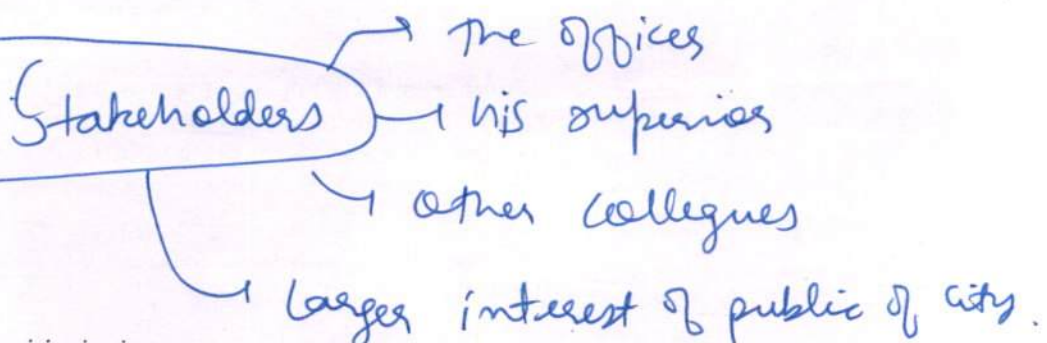 Stakeholders
The officer
his superior
other collegues
Larger interest of public of city.